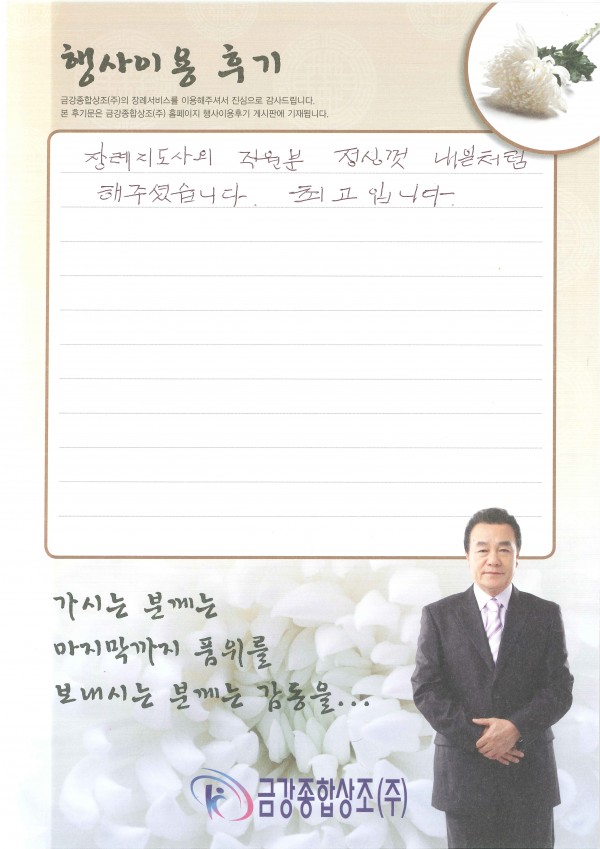 행사이용 후기
금강종합상조(주)의 장례서비스를 이용해주셔서 진심으로 감사드립니다.
본 후기문은 금강종합상조(주) 홈페이지 행사이용후기 게시판에 기재됩니다.
장례지도사의 직원분 정성껏 내일처럼
해주셨습니다. 최고입니다.
가시는 분께는
마지막까지 품위를
보내시는 분께는 감동을...
금강종합상조(주)